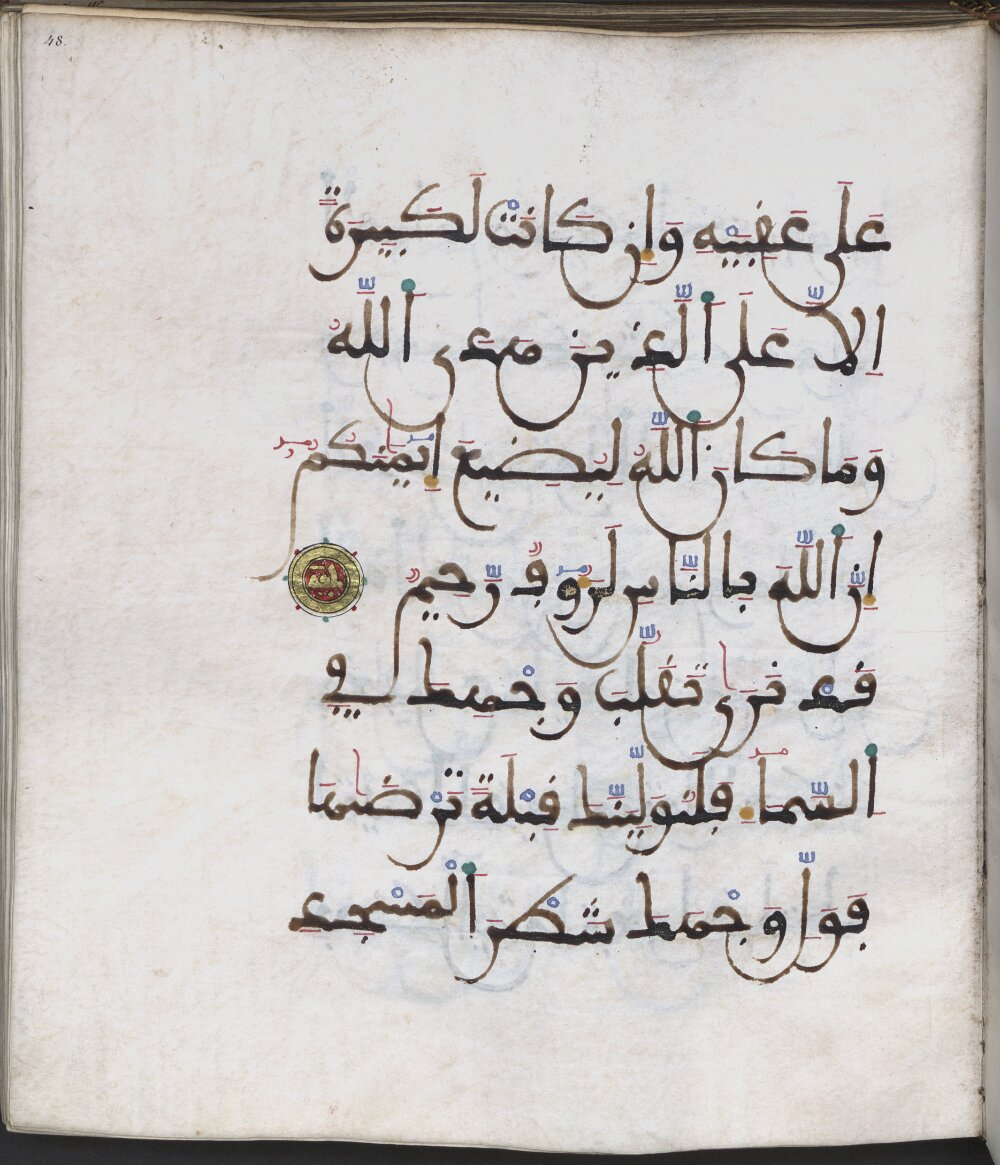 48.
عَلَىٰ عَقِبَيْهِ وَإِن كَانَتْ لَكَبِيرَةً
إِلَّا عَلَى ٱلَّذِينَ هَدَى ٱللَّهُ
وَمَا كَانَ ٱللَّهُ لِيُضِيعَ إِيمَٰنَكُمْ
إِنَّ ٱللَّهَ بِٱلنَّاسِ لَرَءُوفٌ رَّحِيمٌ
قَدْ نَرَىٰ تَقَلُّبَ وَجْهِكَ فِي
ٱلسَّمَآءِ فَلَنُوَلِّيَنَّكَ قِبْلَةً تَرْضَىٰهَا
فَوَلِّ وَجْهَكَ شَطْرَ ٱلْمَسْجِدِ